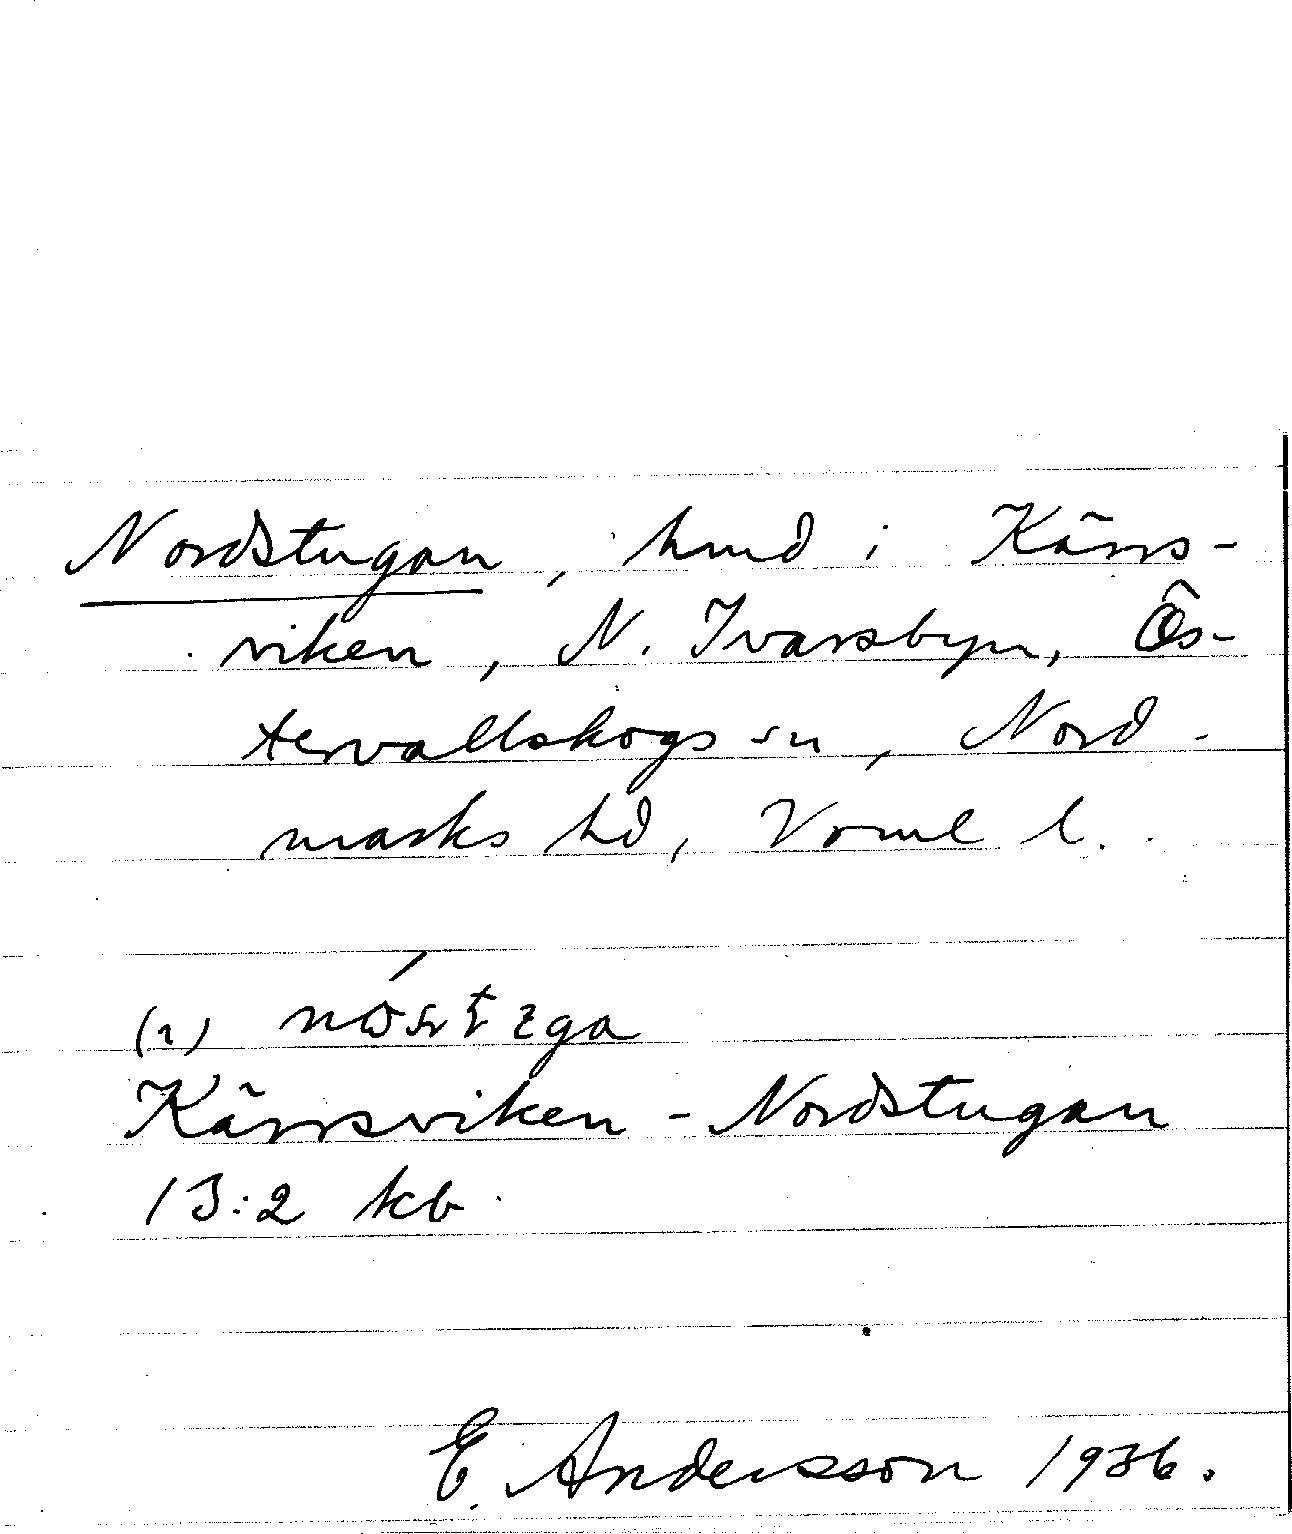 Nordstugan, hmd i Kärrs-
viken, N. Ivarsbyn, Ös-
tervallskogs sn, Nord-
marks hd, Vrml l.
(1)
Kärrsviken - Nordstugan
13:2 kb
E. Andersson 1936.